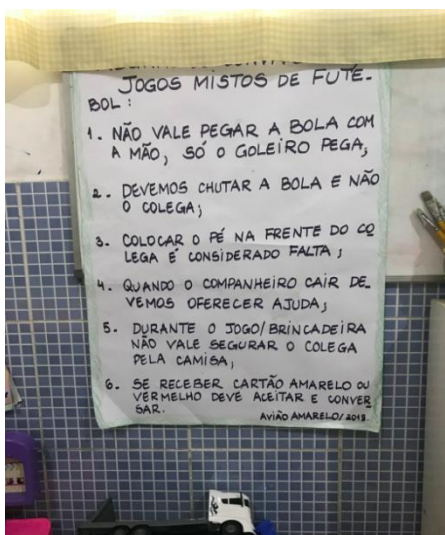 JOGOS MISTOS DE FUTE-
BOL:
1. NÃO VALE PEGAR A BOLA COM
A MÃO, SÓ O GOLEIRO PEGA;
2. DEVEMOS CHUTAR A BOLA E NÃO
O COLEGA;
3. COLOCAR O PÉ NA FRENTE DO CO
LEGA É CONSIDERADO FALTA;
4. QUANDO O COMPANHEIRO CAIR DE_
VEMOS OFERECER AJUDA;
5. DURANTE O JOGO/BRINCADEIRA
NÃO VALE SEGURAR O COLEGA
PELA CAMISA;
6. SE RECEBER CARTÃO AMARELO OU
VERMELHO DEVE ACEITAR E CONVER
SAR.
AVIÃO AMARELO/2018.